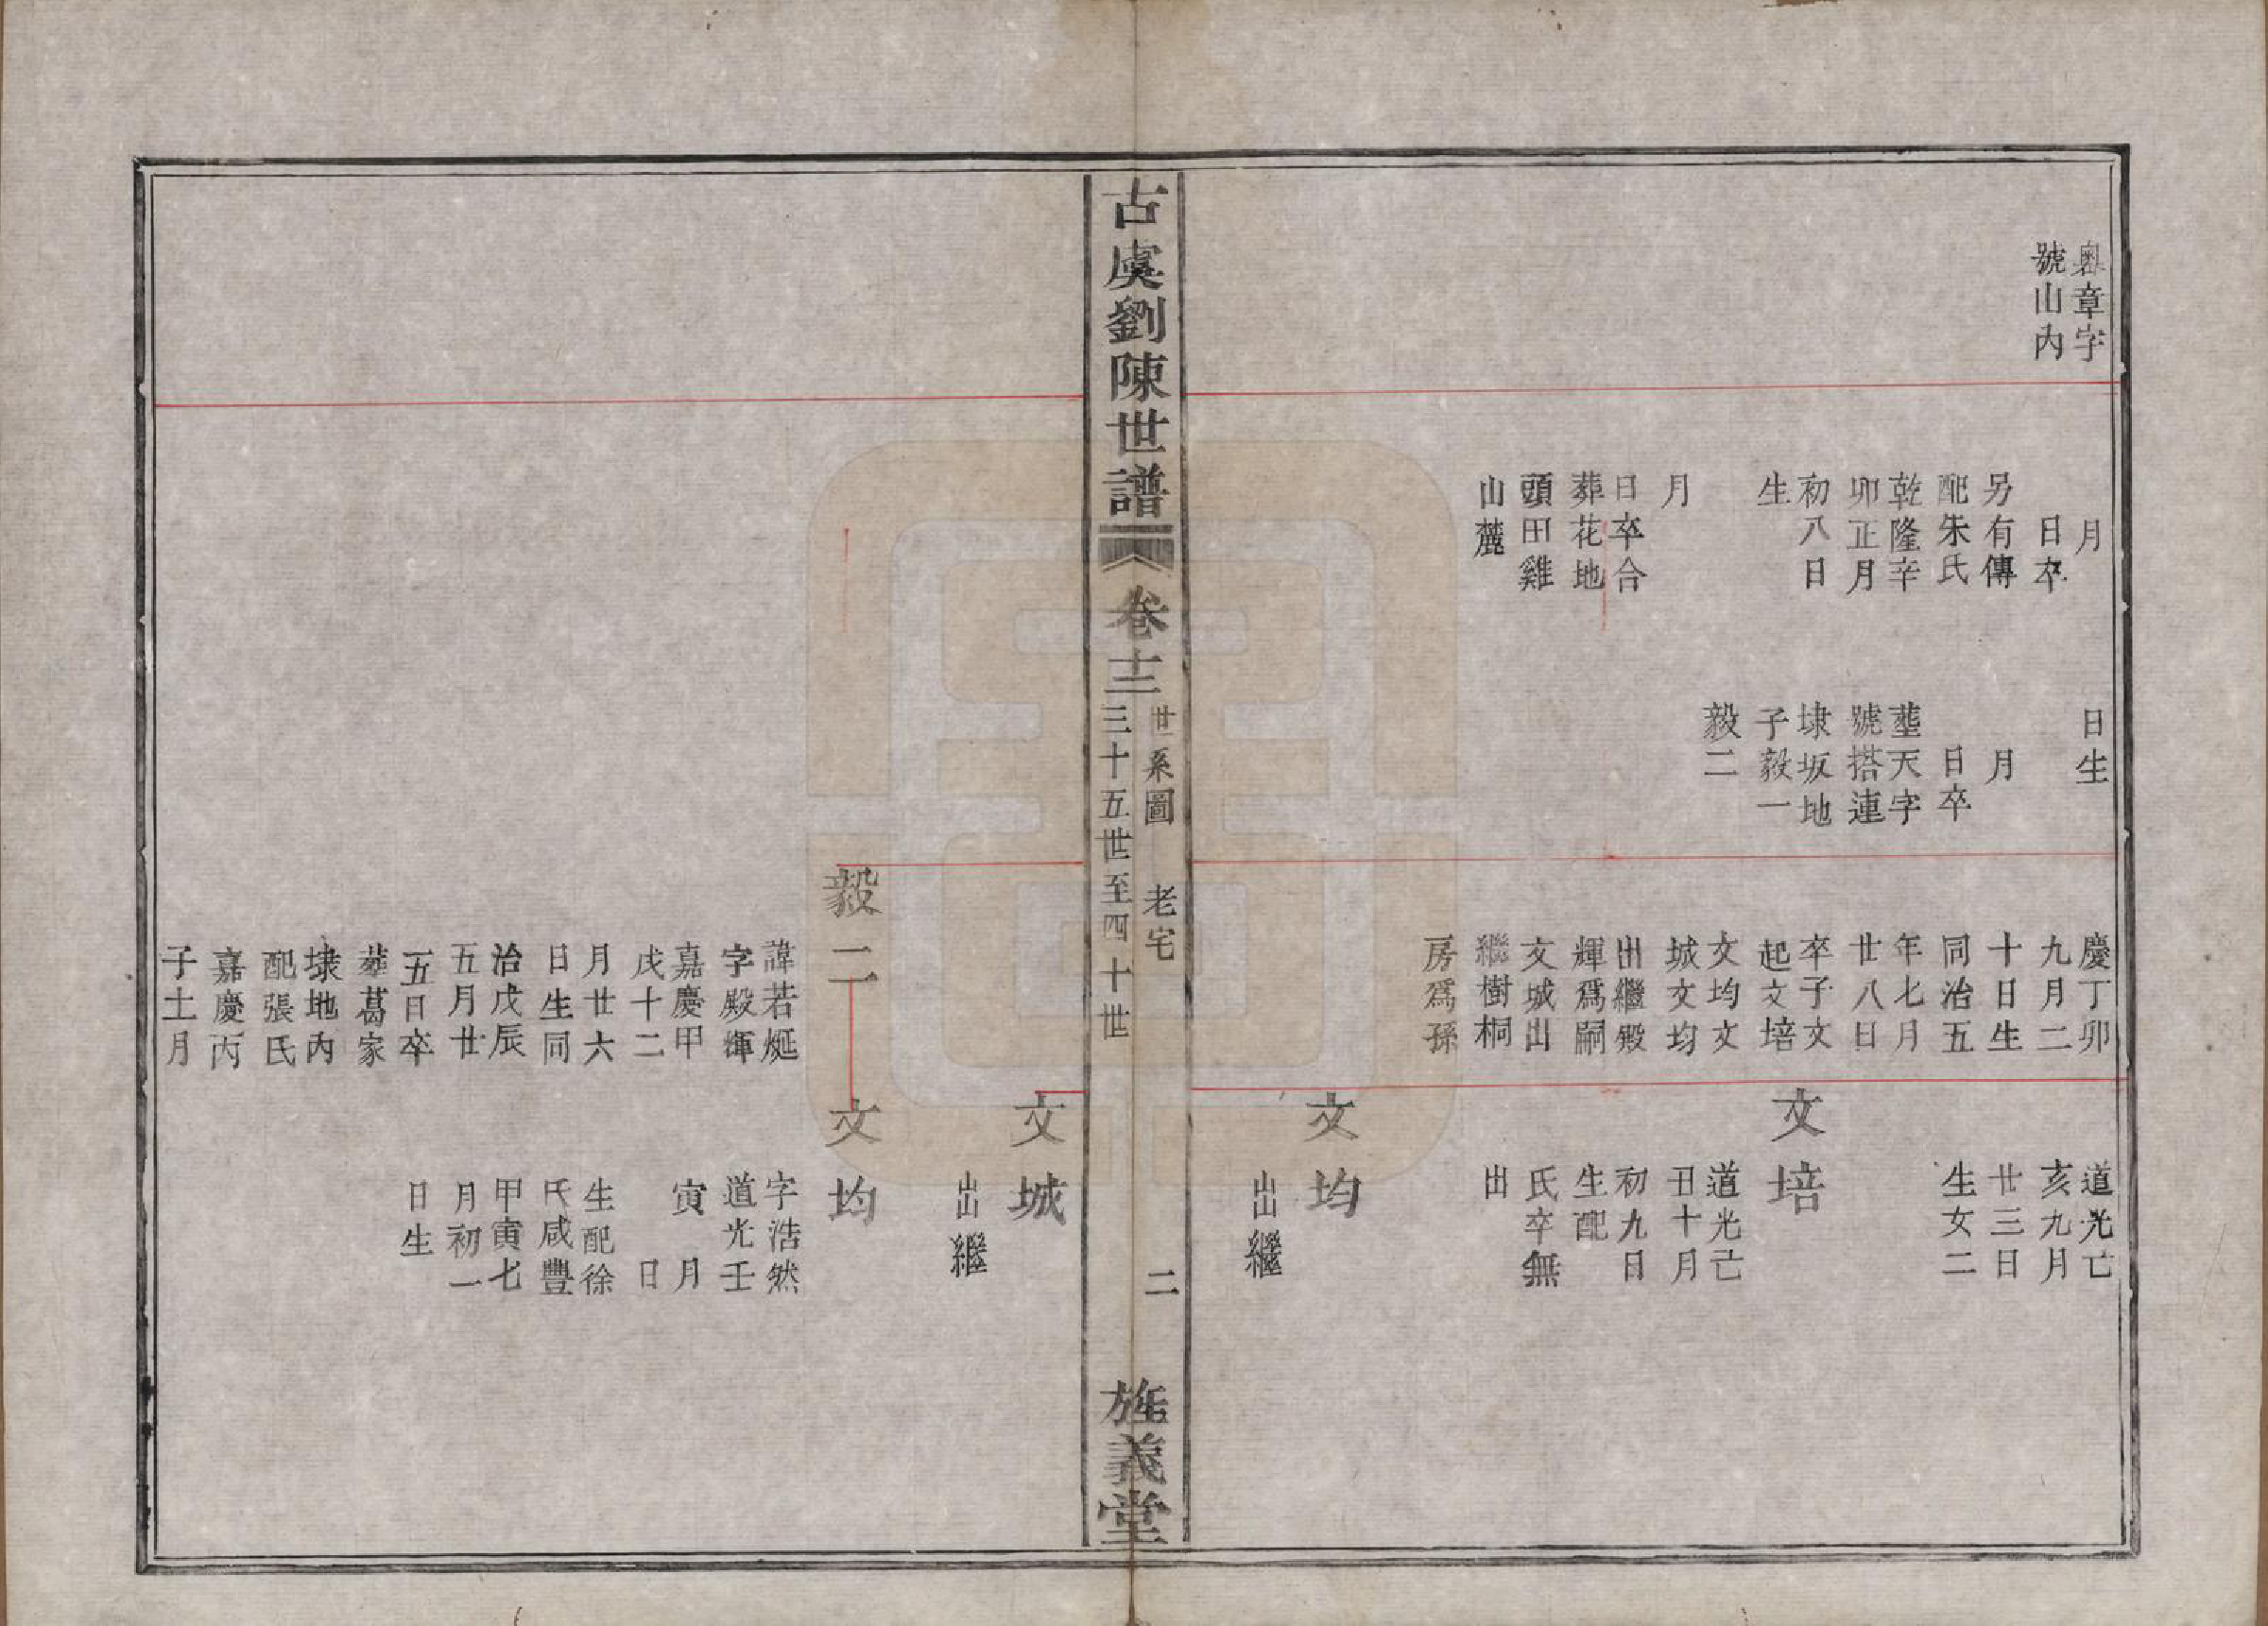 奧章字
號山內
月
日卒
另有傳
配朱氏
乾隆辛
卯正月
初八日
生
月
日卒合
葬花地
頭田雞
山麓
日生
月
日卒
塟天字
號搭連
埭坂地
子毅一
毅二
慶丁卯
九月二
十日生
同治五
年七月
廿八日
卒子文
起文培
文均文
城文均
出繼殿
輝爲嗣
文城出
繼樹桐
房爲孫
道光亡
亥九月
廿三日
生女二
文培
道光亡
丑十月
初九日
生配
氏卒無
出
文均
出繼
古虞劉陳世譜
卷十三
世系圖 老宅
三十五世至四十世
二
旌義堂
文城
出繼
毅二
諱若烻
字殿輝
嘉慶甲
戌十二
月廿六
日生同
治戊辰
五月廿
五日卒
葬葛家
埭地內
配張氏
嘉慶丙
子十一月
文均
字浩然
道光壬
寅 月
日
生配徐
氏咸豐
甲寅七
月初一
日生